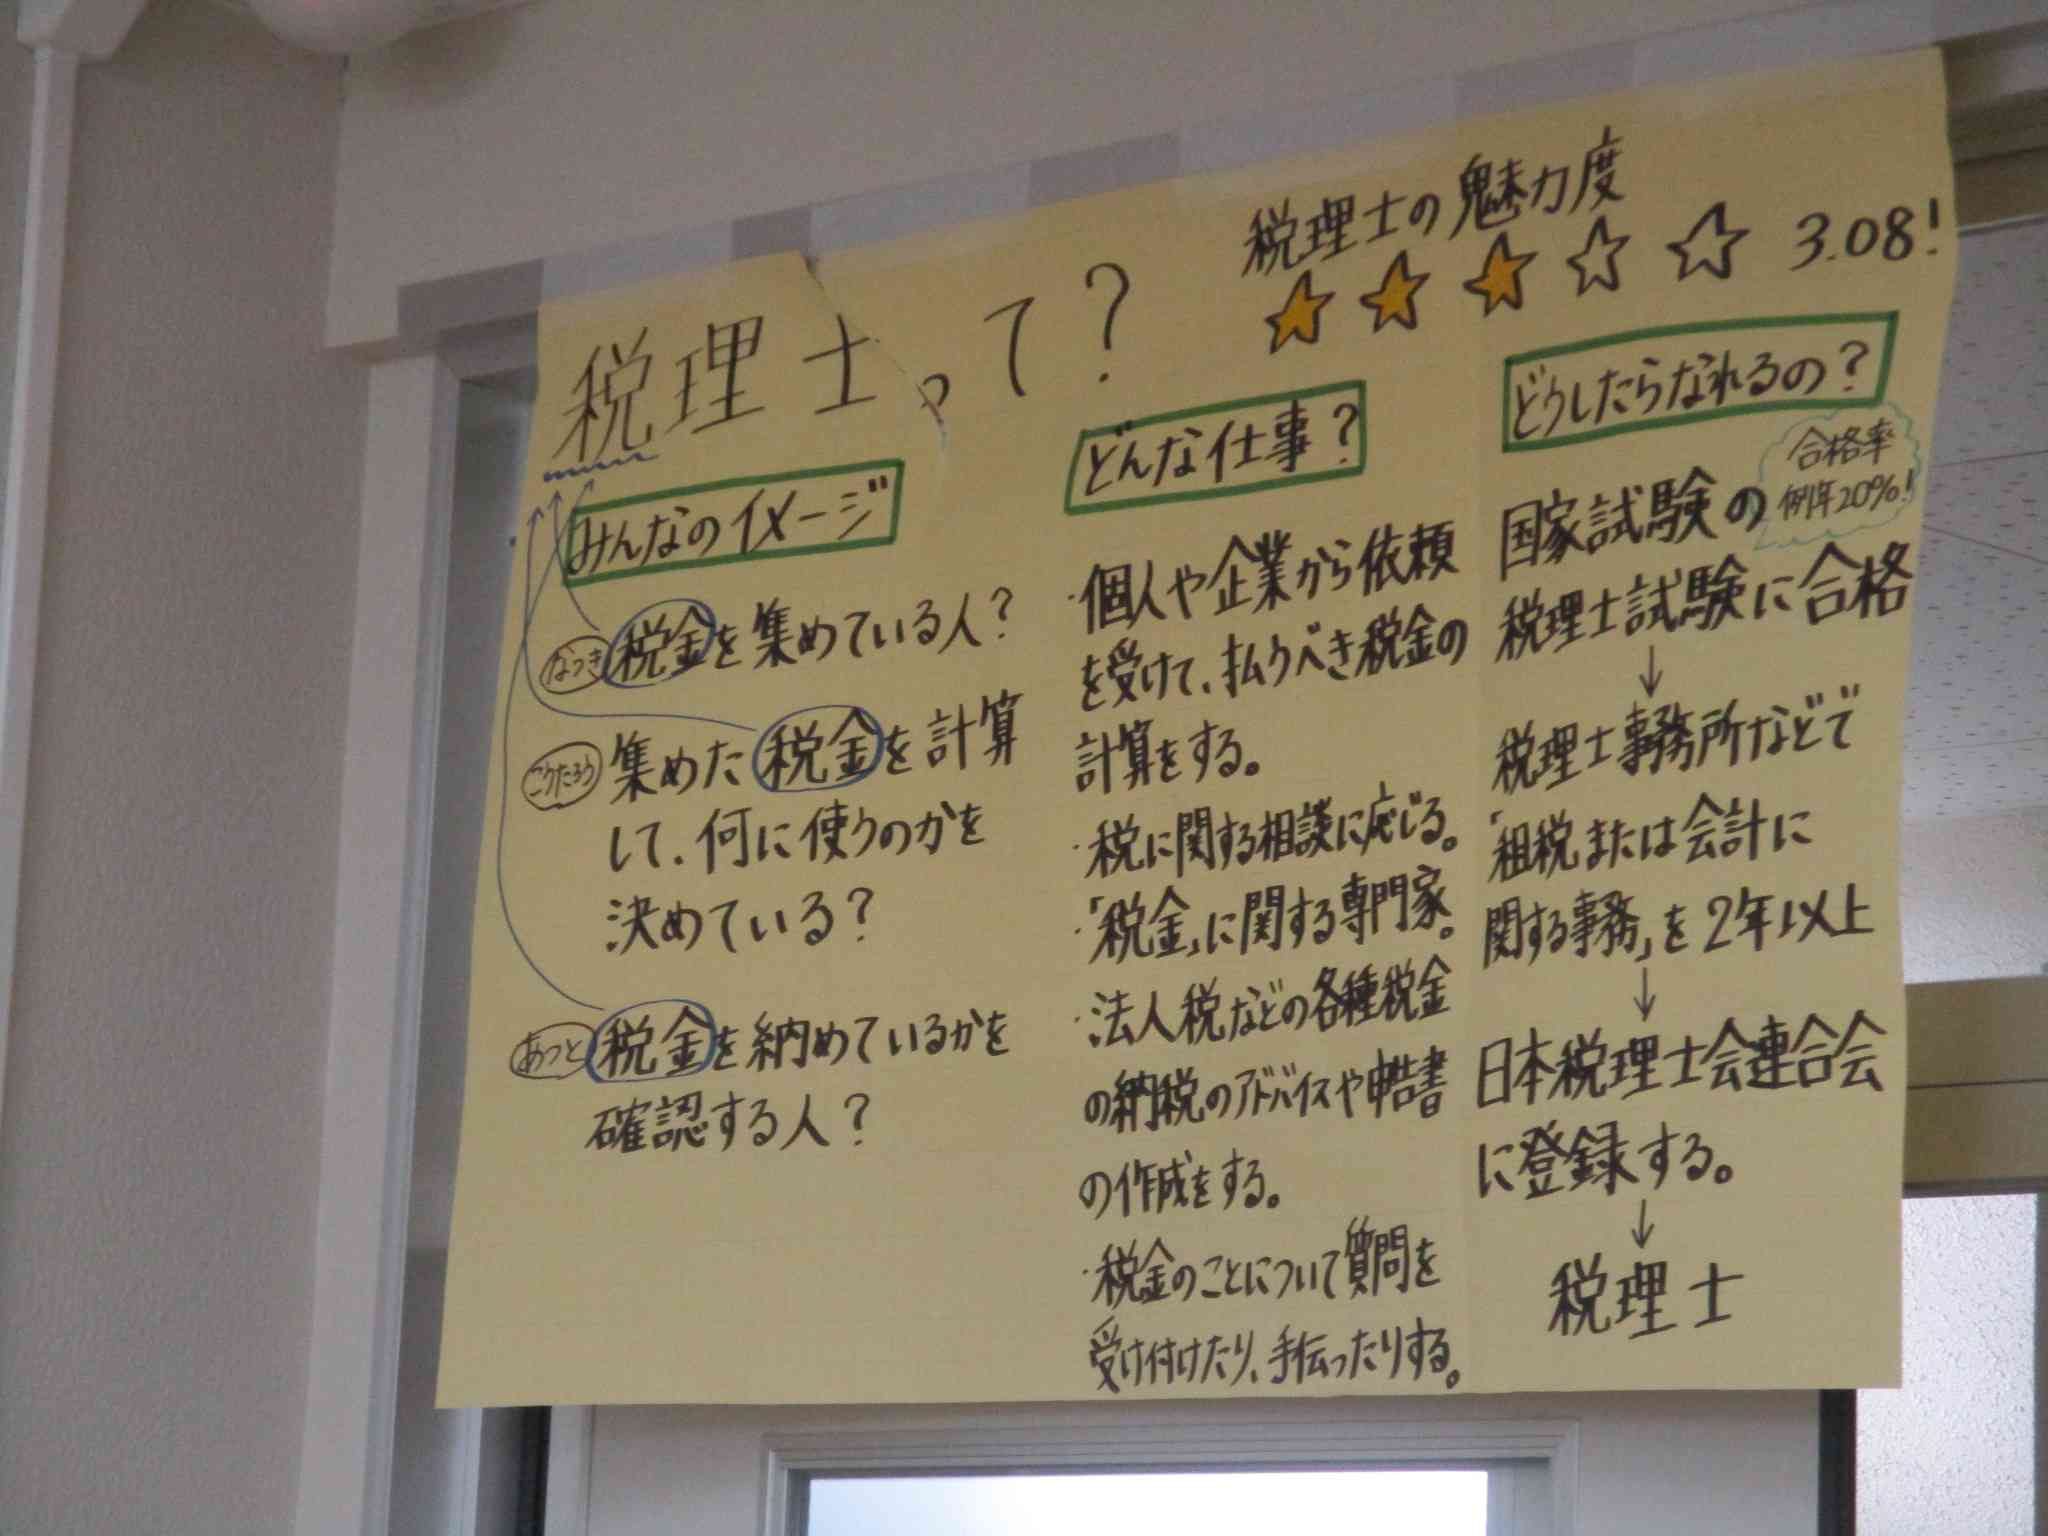 税理士って？
税理士の魅力度
3.08！
みんなのイメージ
なつき 税金を集めている人？
こうたろう 集めた税金を計算
して、何に使うのかを
決めている？
あつと 税金を納めているかを
確認する人？
どんな仕事？
・個人や企業から依頼
を受けて、払うべき税金の
計算をする。
・税に関する相談に応じる。
・「税金」に関する専門家。
・法人税などの各種税金
の納税のアドバイスや申告書
の作成をする。
・税金のことについて質問を
受け付けたり、手伝ったりする。
どうしたらなれるの？
合格率
例年20%！
国家試験の
税理士試験に合格
↓
税理士事務所などで
「租税または会計に
関する事務」を2年以上
↓
日本税理士会連合会
に登録する。
↓
税理士